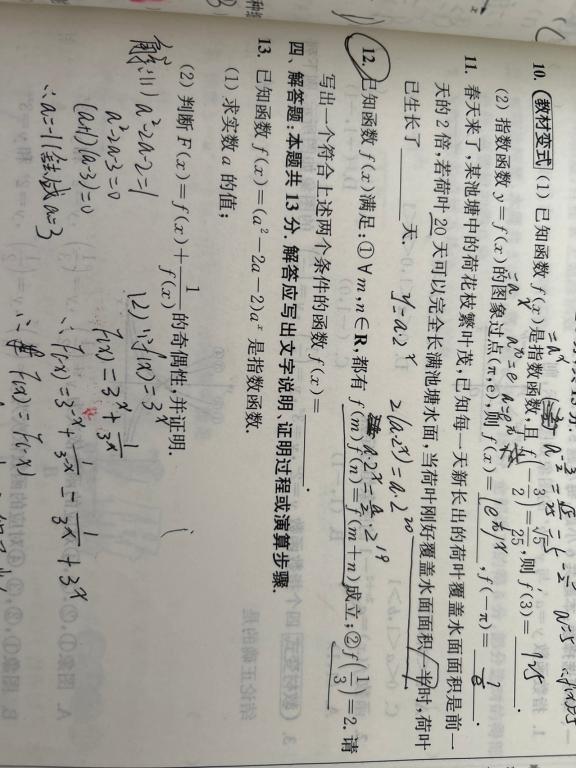 10. 教材变式 (1) 已知函数 f(x) 是指数函数, 且 f(-3/2)=√5/25, 则 f(3)=______.
125
(2) 指数函数 y=f(x) 的图象过点(π,e), 则 f(x)=______, f(-π)=______.
11. 春天来了,某池塘中的荷花枝繁叶茂,已知每一天新长出的荷叶覆盖水面面积是前一
天的2倍,若荷叶20天可以完全长满池塘水面,当荷叶刚好覆盖水面面积一半时,荷叶
已生长了______天.
y=a·2^x
2(a·2^x)=a·2^20
12. 已知函数 f(x)满足:①∀m,n∈R,都有 f(m)f(n)=f(m+n)成立;②f(1/3)=2. 请
写出一个符合上述两个条件的函数 f(x)=______.
四、解答题:本题共13分.解答应写出文字说明、证明过程或演算步骤.
13. 已知函数 f(x)=(a²-2a-2)a^x 是指数函数.
(1) 求实数 a 的值;
(2) 判断 F(x)=f(x)+1/f(x) 的奇偶性,并证明.
解:(1) a²-2a-2=1
a²-2a-3=0
(a+1)(a-3)=0
∴a=-1(舍)或a=3
(2) ∵f(x)=3^x
F(x)=3^x+1/3^x
∴F(-x)=3^-x+1/3^-x=1/3^x+3^x
∴F(x)=F(-x)